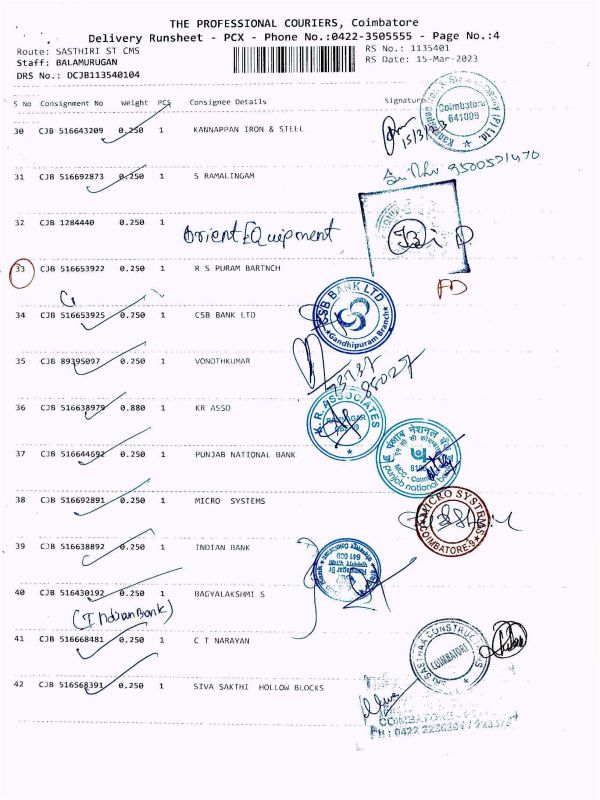 THE PROFESSIONAL COURIERS, Coimbatore
Delivery Runsheet - PCX - Phone No.:0422-3505555 - Page No.:4
Route: SASTHIRI ST CMS
RS No.: 1135401
Staff: BALAMURUGAN
RS Date: 15-Mar-2023
DRS No.: DCJB113540104
S No Consignment No Weight PCS Consignee Details Signature
Coimbatore
641009
30 CJB 516643209 0.250 1 KANNAPPAN IRON & STEEL
15/3/23
31 CJB 516692873 0.250 1 S RAMALINGAM
32 CJB 1284440 0.250 1
Orient EQuipment
33 CJB 516653922 0.250 1 R S PURAM BARTNCH
34 CJB 516653925 0.250 1 CSB BANK LTD
CSB BANK LTD
Gandhipuram Branch
35 CJB 89395097 0.250 1 VONOTHKUMAR
36 CJB 516638979 0.880 1 KR ASSO
K.R. ASSOCIATES
37 CJB 516644692 0.250 1 PUNJAB NATIONAL BANK
पंजाब नैशनल बैंक
punjab national bank
38 CJB 516692891 0.250 1 MICRO SYSTEMS
MICRO SYSTEMS
COIMBATORE-9
39 CJB 516638892 0.250 1 INDIAN BANK
40 CJB 516430192 0.250 1 BAGYALAKSHMI S
(IndianBank)
41 CJB 516668481 0.250 1 C T NARAYAN
SRI SASTHAA CONSTRUCTIONS
COIMBATORE
42 CJB 516568391 0.250 1 SIVA SAKTHI HOLLOW BLOCKS